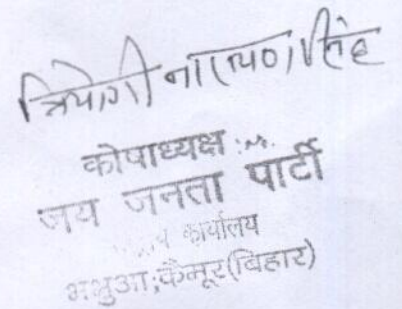 त्रियोगी नारायण सिंह
कोषाध्यक्ष
जय जनता पार्टी
कार्यालय
भभुआ,कैमूर(बिहार)